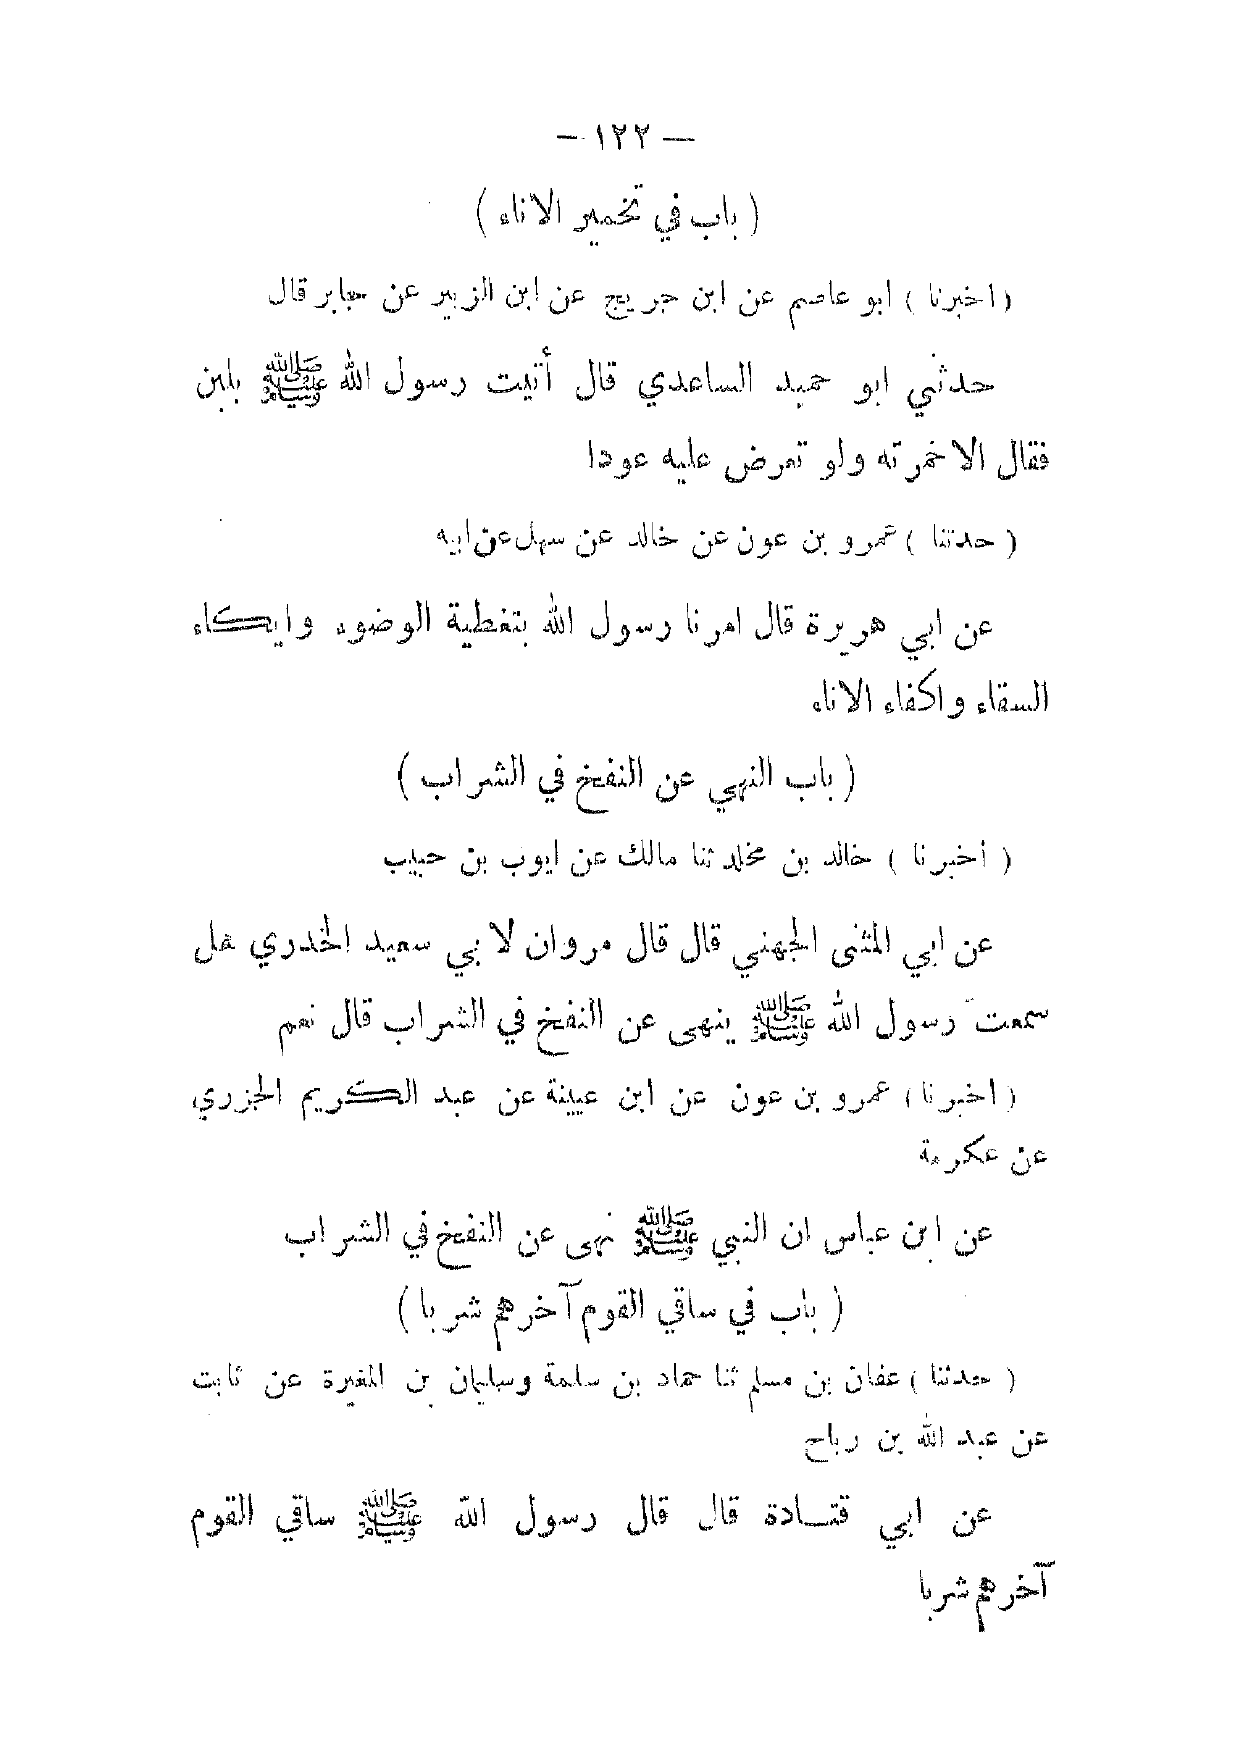 — ١٢٢ —
( باب في تخمير الاناء )
( اخبرنا ) ابو عاصم عن ابن جريج عن ابن الزبير عن جابر قال
حدثني ابو حميد الساعدي قال أتيت رسول الله ﷺ بلبن
فقال الا خمرته ولو تعرض عليه عودا
( حدثنا ) عمرو بن عون عن خالد عن سهل عن ابيه
عن ابي هريرة قال امرنا رسول الله بتغطية الوضوء وايكاء
السقاء واكفاء الاناء
( باب النهي عن النفخ في الشراب )
( أخبرنا ) خالد بن مخلد ثنا مالك عن ايوب بن حبيب
عن ابي المثنى الجهني قال قال مروان لا بي سعيد الخدري هل
سمعت رسول الله ﷺ ينهى عن النفخ في الشراب قال نعم
( اخبرنا ) عمرو بن عون عن ابن عيينة عن عبد الكريم الجزري
عن عكرمة
عن ابن عباس ان النبي ﷺ نهى عن النفخ في الشراب
( باب في ساقي القوم آخرهم شربا )
( حدثنا ) عفان بن مسلم ثنا حماد بن سلمة وسليمان بن المغيرة عن ثابت
عن عبد الله بن رباح
عن ابي قتادة قال قال رسول الله ﷺ ساقي القوم
آخرهم شربا